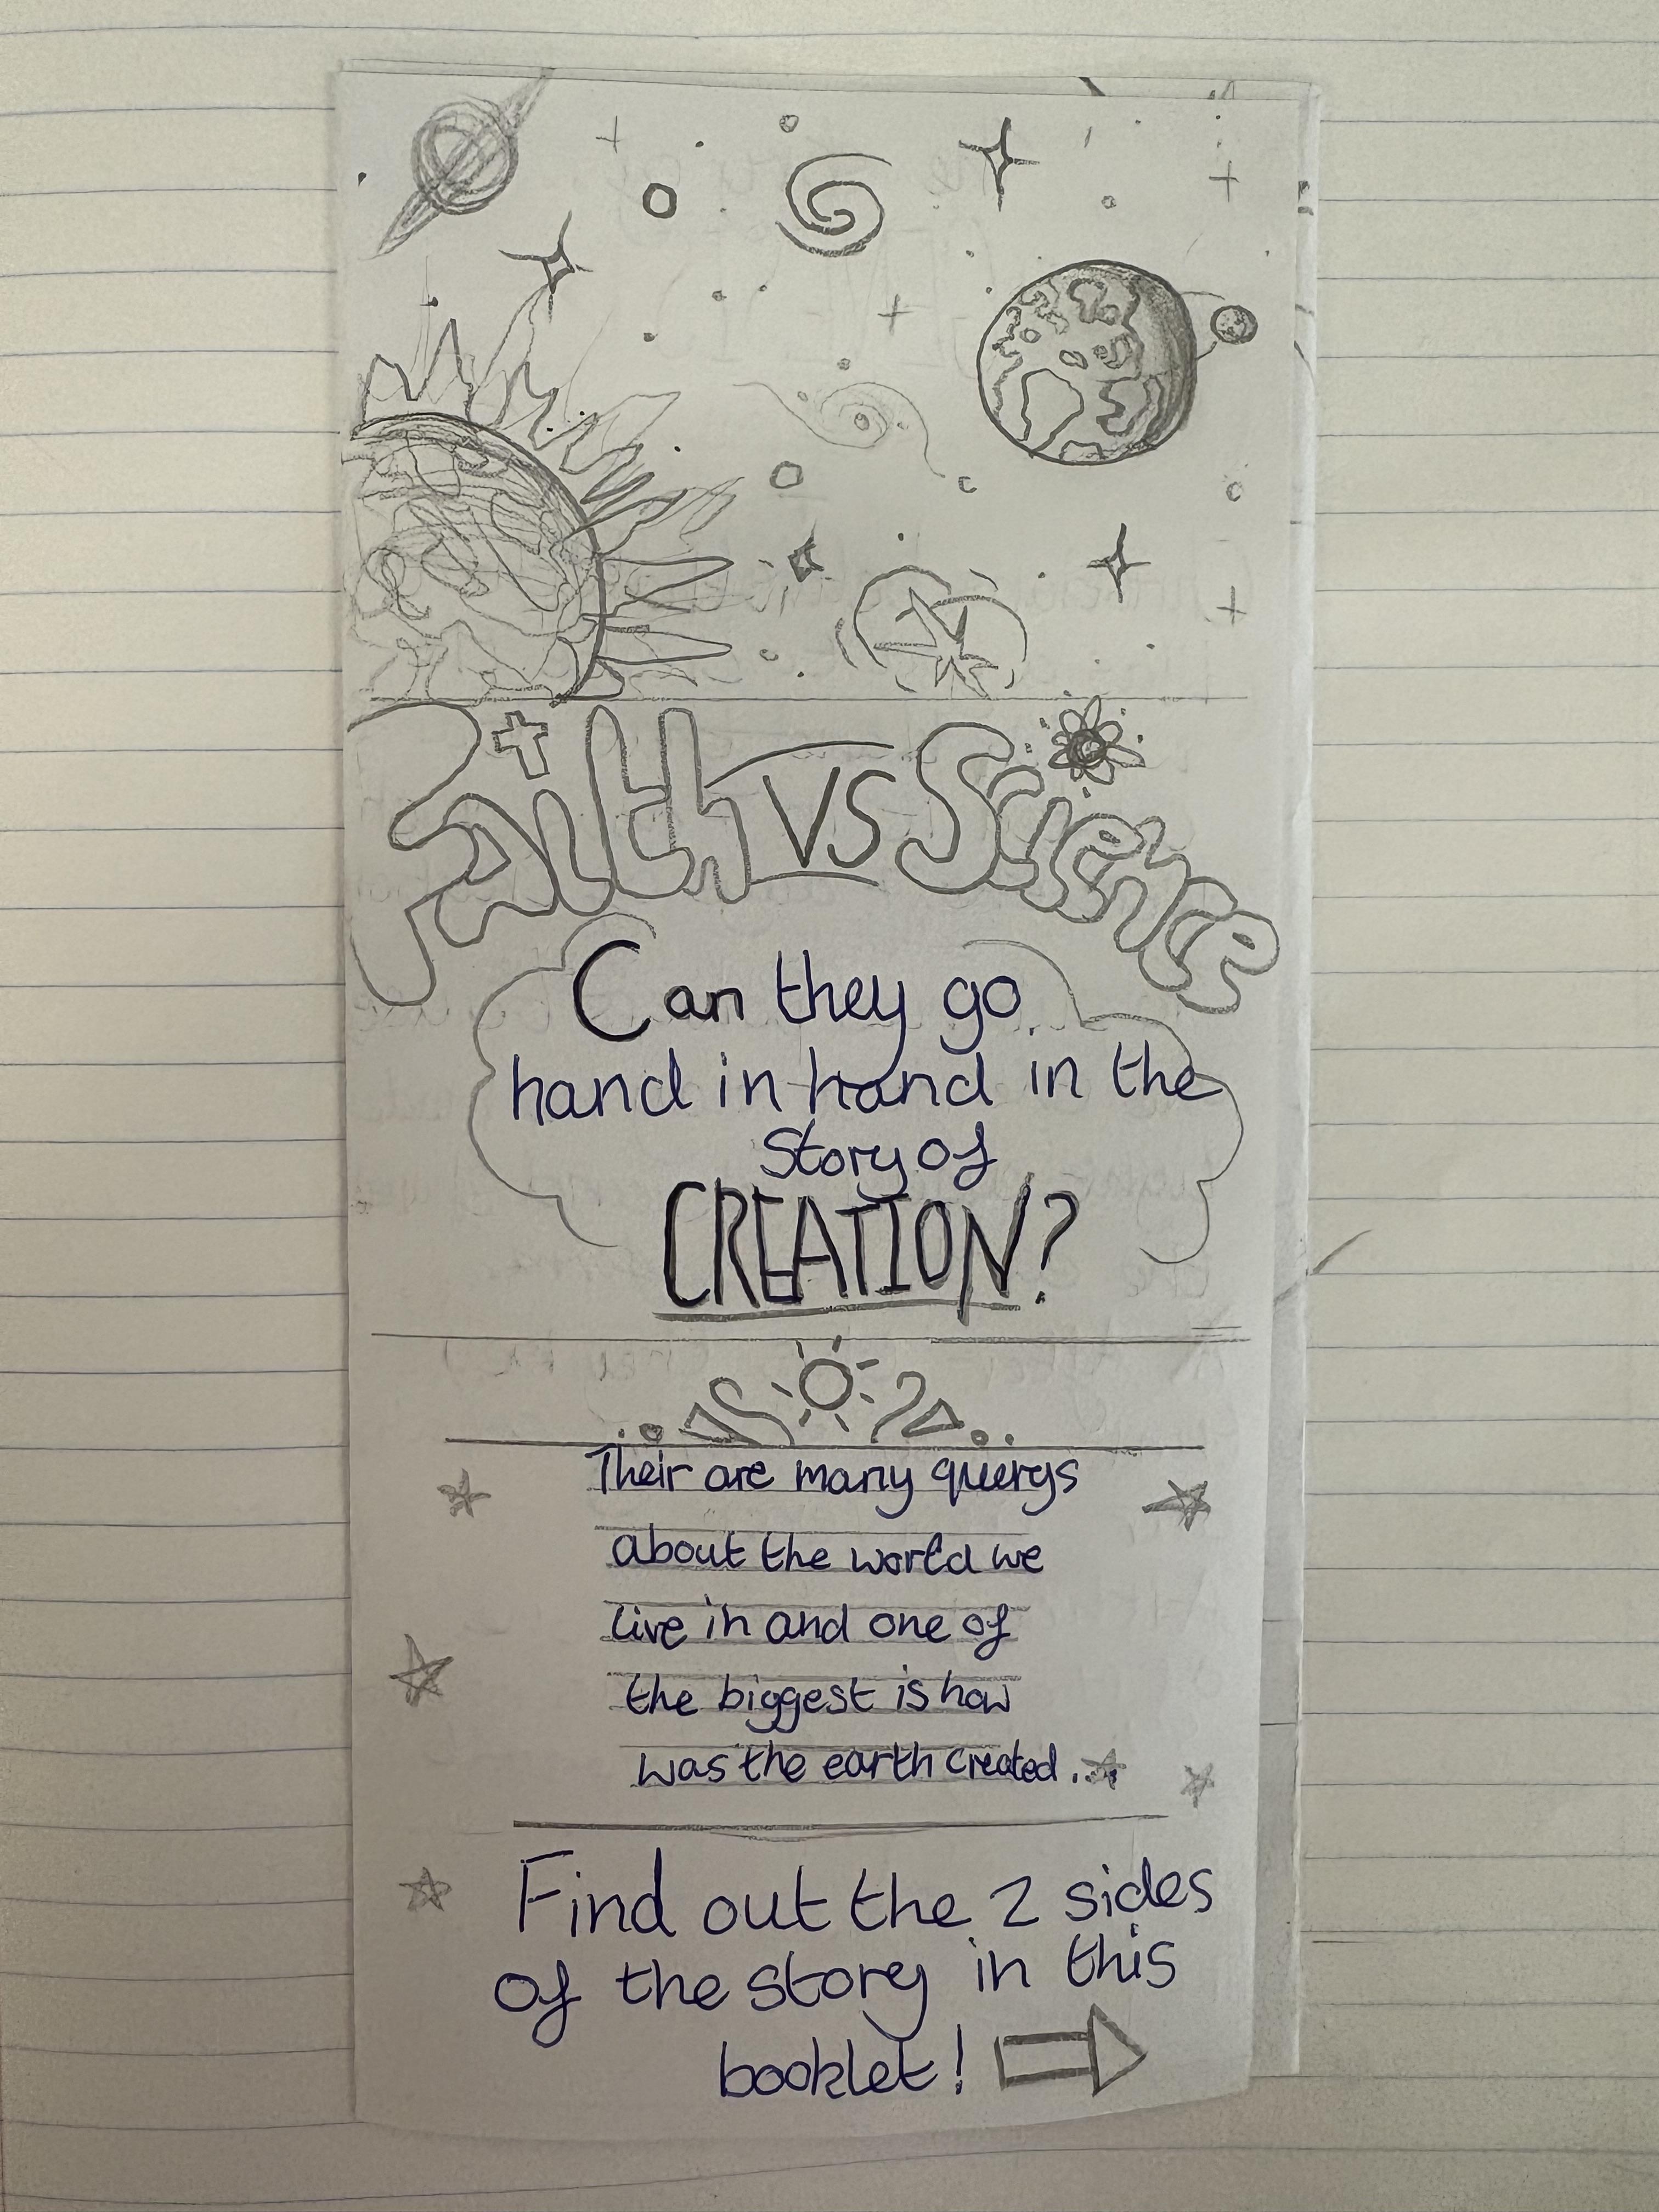 Faith vs Science
Can they go
hand in hand in the
Story of
CREATION?
Their are many querys
about the world we
live in and one of
the biggest is how
was the earth created...
Find out the 2 sides
of the story in this
booklet!